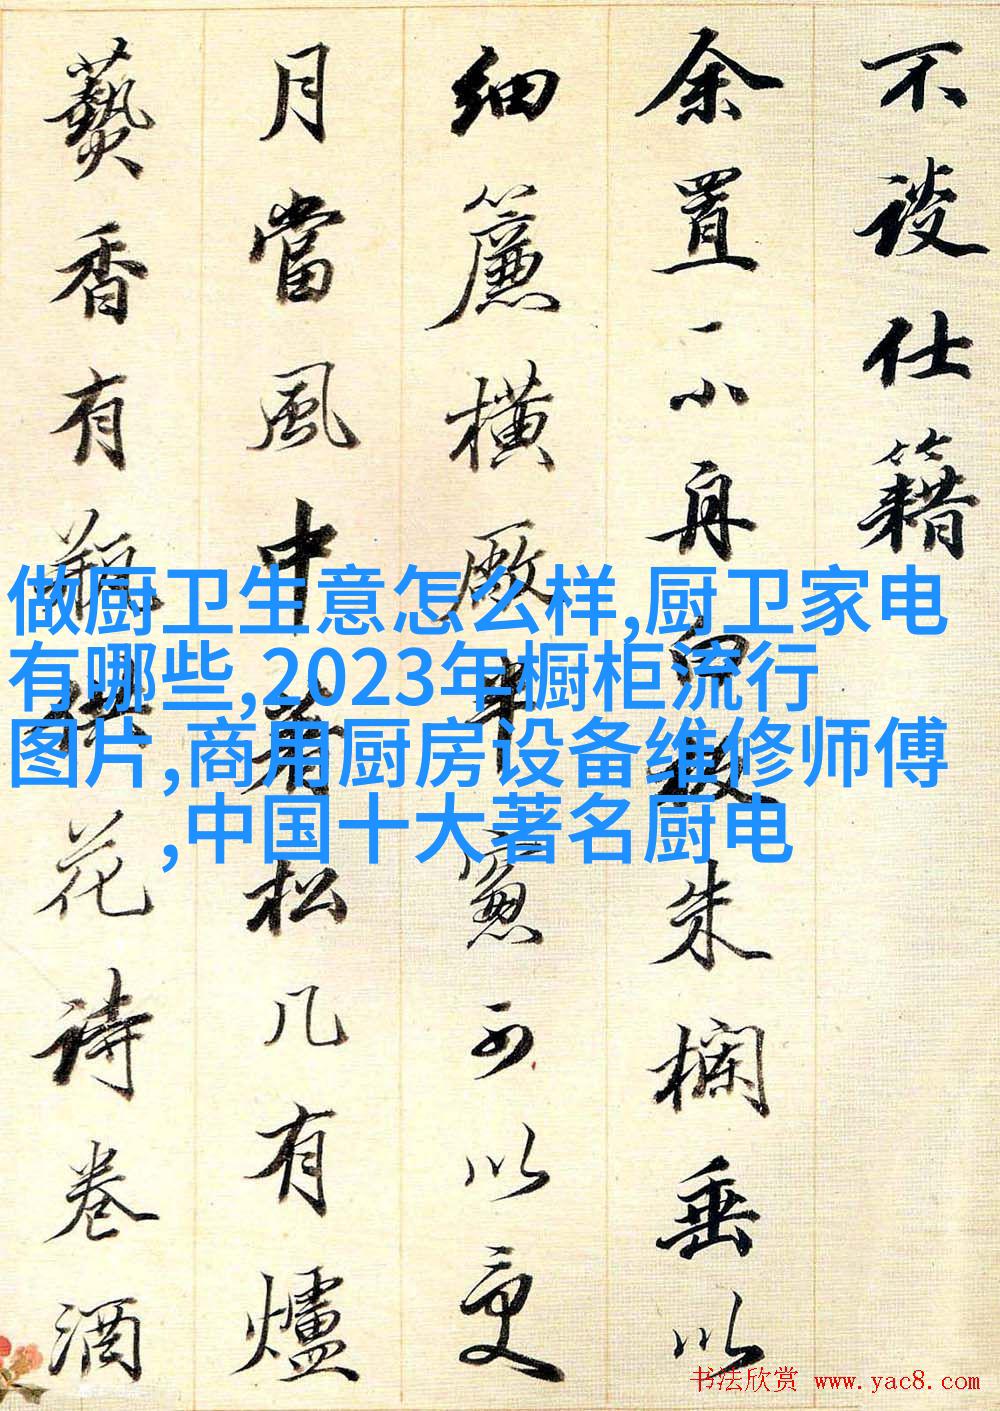 不談仕籍
余置一小舟白板朱欄垂以
細簾橫廠半窻可以更
月當風中着松几有爐
爇香有瓶供花詩卷酒
做厨卫生意怎么样,厨卫家电
有哪些,2023年橱柜流行
图片,商用厨房设备维修师傅
,中国十大著名厨电
书法欣赏 www.yac8.com